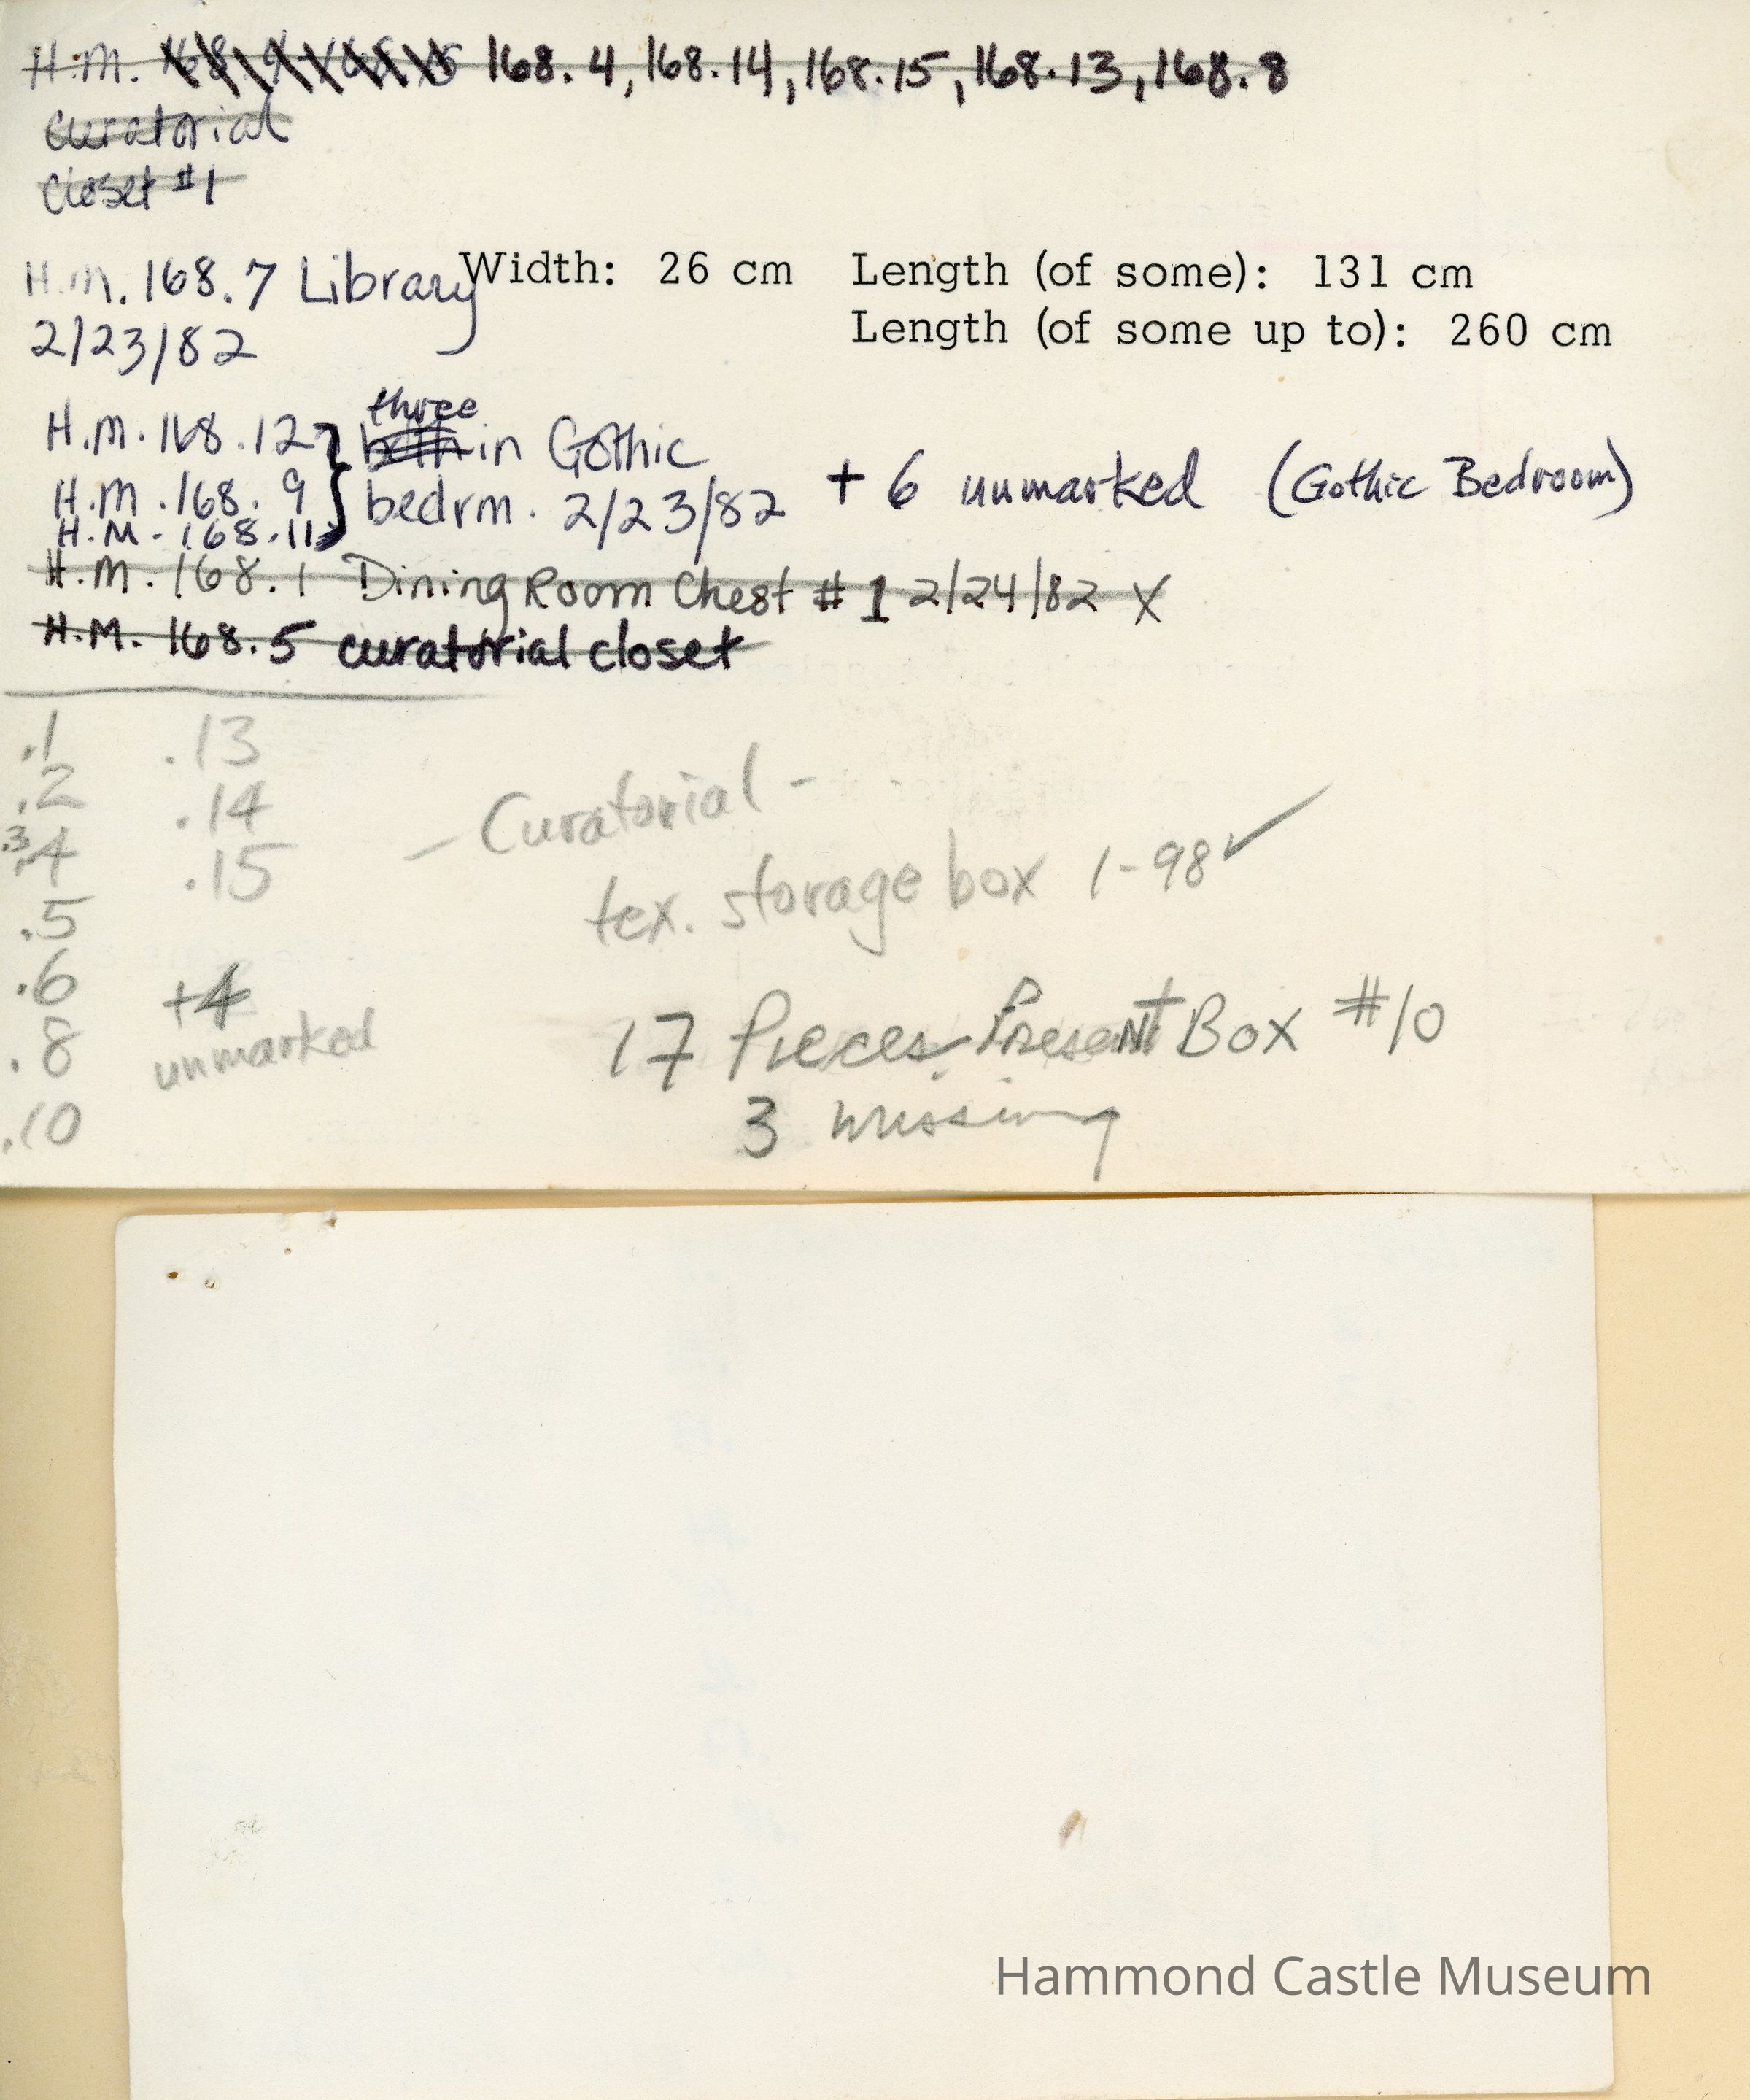 H.M. 168.4, 168.14, 168.15, 168.13, 168.8
curatorial
closet #1
H.M. 168.7 Library
2/23/82
Width: 26 cm Length (of some): 131 cm
Length (of some up to): 260 cm
three
H.M. 168.12 both in Gothic
H.M. 168.9 bedrm. 2/23/82 + 6 unmarked (Gothic Bedroom)
H.M. 168.11
H.M. 168.1 Dining Room Chest #1 2/24/82 X
H.M. 168.5 curatorial closet
.1 .13
.2 .14
.3 .4 .15
.5
.6
.8
.10
+4
unmarked
- Curatorial -
tex. storage box 1-98 ✓
17 Pieces Present Box #10
3 missing
Hammond Castle Museum